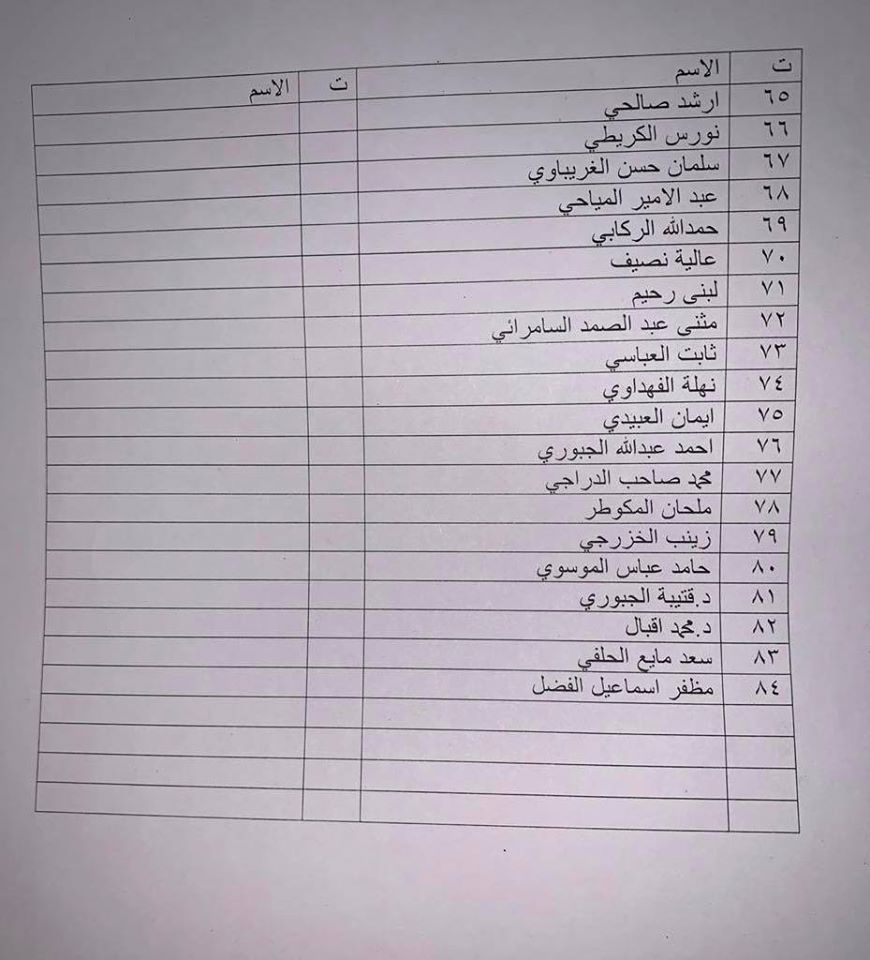 ت الاسم ت الاسم
٦٥ ارشد صالحي
٦٦ نورس الكريطي
٦٧ سلمان حسن الغريباوي
٦٨ عبد الامير المياحي
٦٩ حمدالله الركابي
٧٠ عالية نصيف
٧١ لبنى رحيم
٧٢ مثنى عبد الصمد السامرائي
٧٣ ثابت العباسي
٧٤ نهلة الفهداوي
٧٥ ايمان العبيدي
٧٦ احمد عبدالله الجبوري
٧٧ محمد صاحب الدراجي
٧٨ ملحان المكوطر
٧٩ زينب الخزرجي
٨٠ حامد عباس الموسوي
٨١ د.قتيبة الجبوري
٨٢ د.محمد اقبال
٨٣ سعد مايع الحلفي
٨٤ مظفر اسماعيل الفضل